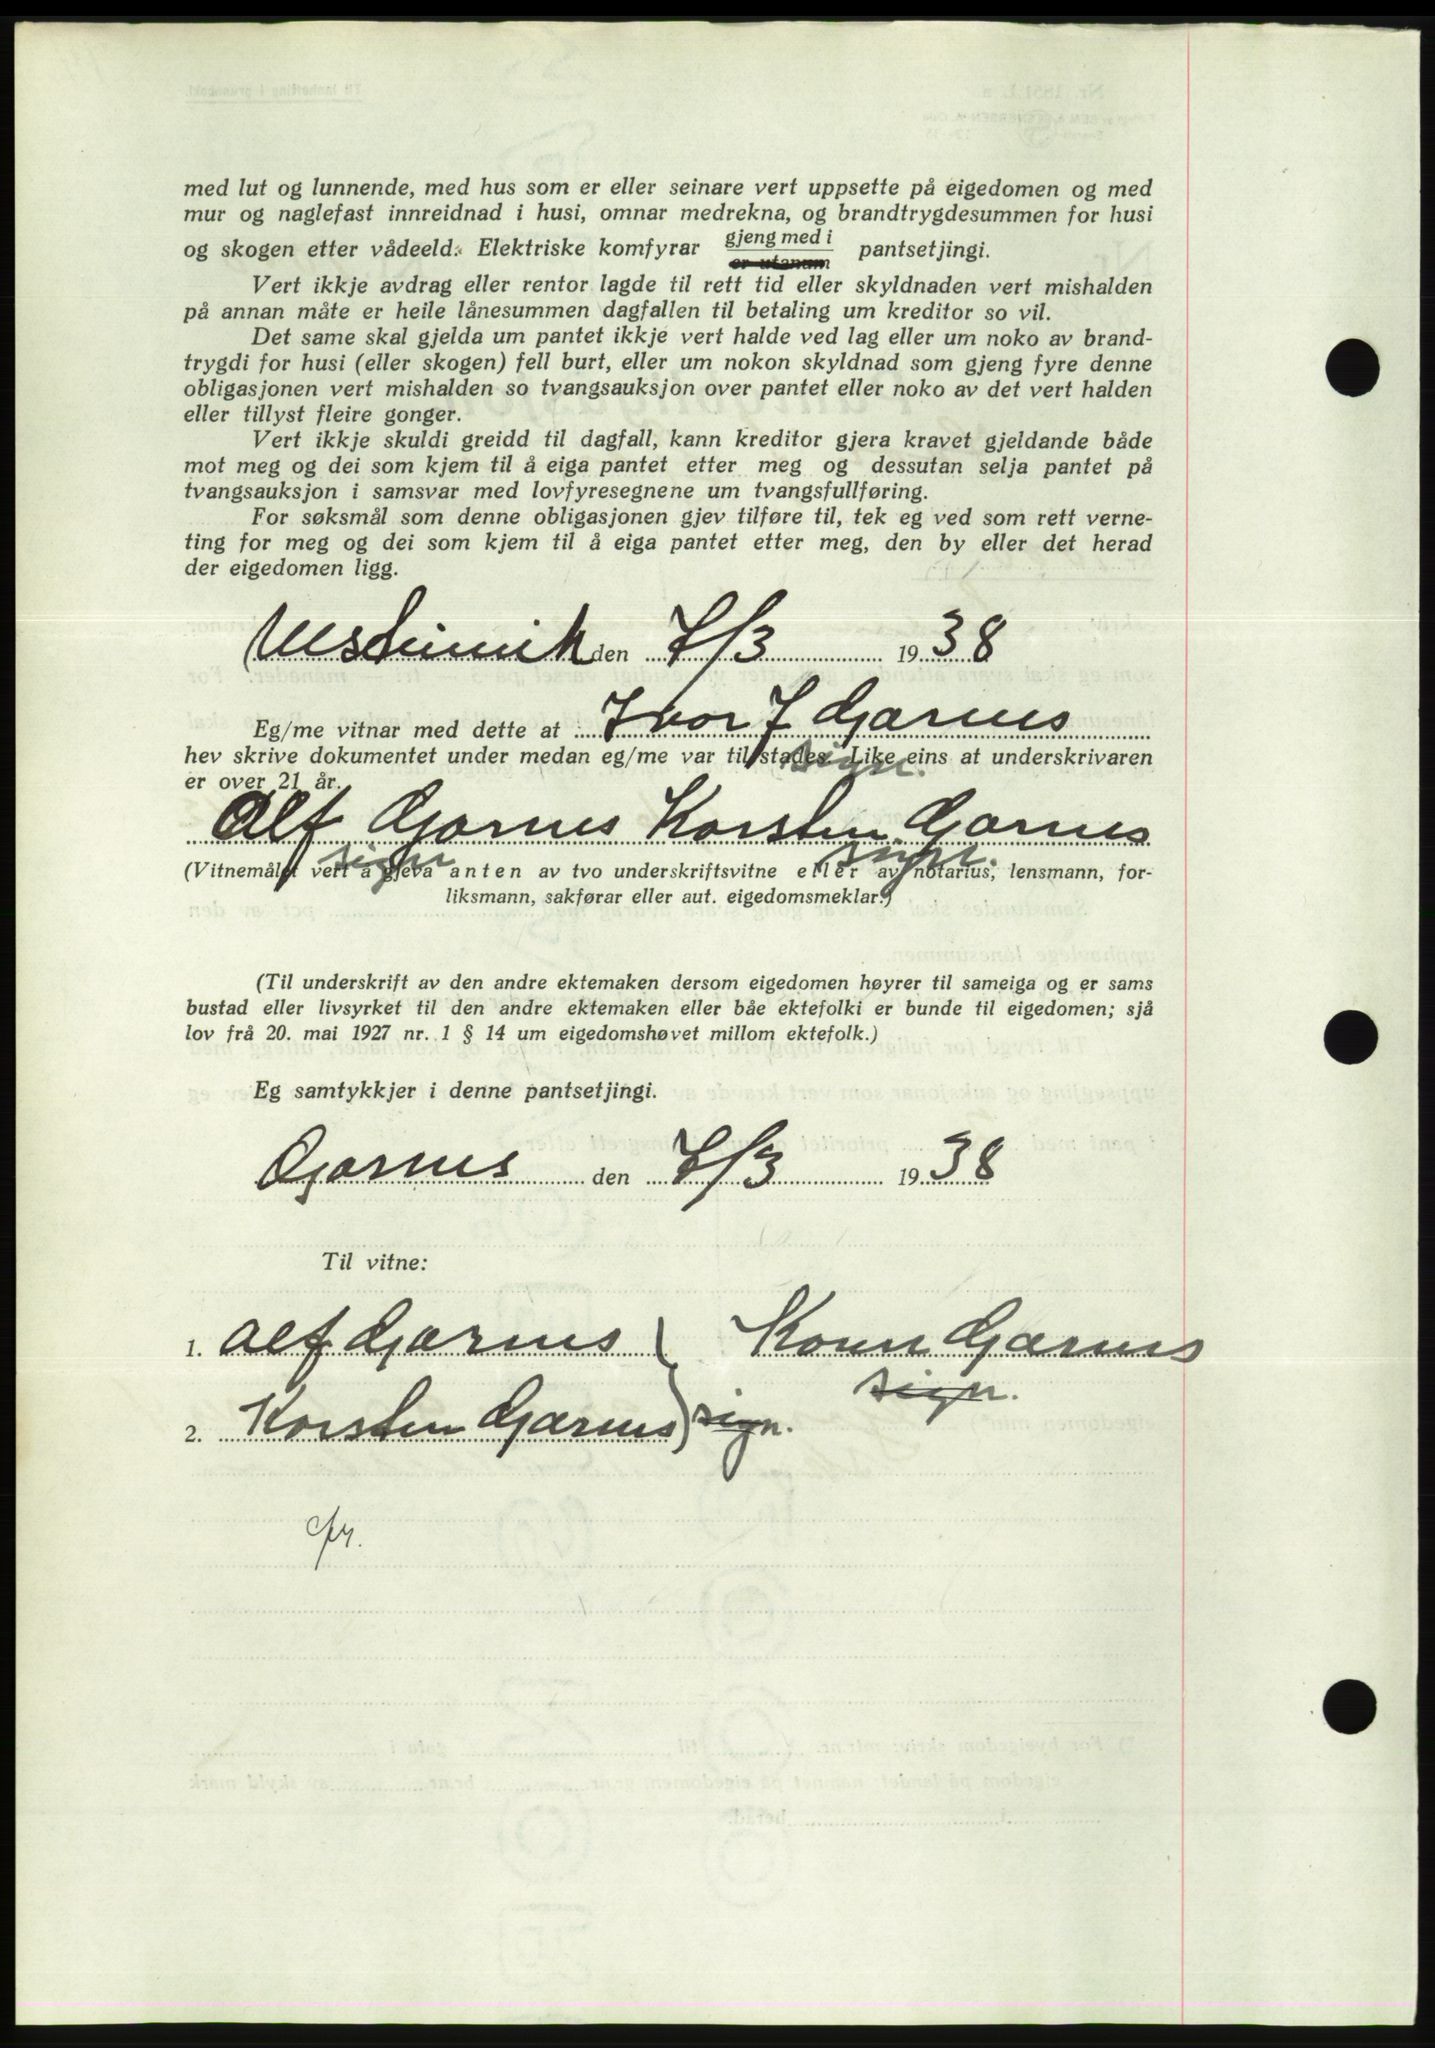 med lut og lunnende, med hus som er eller seinare vert uppsette på eigedomen og med
mur og naglefast innreidnad i husi, omnar medrekna, og brandtrygdesummen for husi
og skogen etter vådeeld. Elektriske komfyrar gjeng med i er utanum pantsetjingi.
Vert ikkje avdrag eller rentor lagde til rett tid eller skyldnaden vert mishalden
på annan måte er heile lånesummen dagfallen til betaling um kreditor so vil.
Det same skal gjelda um pantet ikkje vert halde ved lag eller um noko av brand-
trygdi for husi (eller skogen) fell burt, eller um nokon skyldnad som gjeng fyre denne
obligasjonen vert mishalden so tvangsauksjon over pantet eller noko av det vert halden
eller tillyst fleire gonger.
Vert ikkje skuldi greidd til dagfall, kann kreditor gjera kravet gjeldande både
mot meg og dei som kjem til å eiga pantet etter meg og dessutan selja pantet på
tvangsauksjon i samsvar med lovfyresegnene um tvangsfullføring.
For søksmål som denne obligasjonen gjev tilføre til, tek eg ved som rett verne-
ting for meg og dei som kjem til å eiga pantet etter meg, den by eller det herad
der eigedomen ligg.
den 7/3 1938
Eg/me vitnar med dette at Ivar J Gjørnes
hev skrive dokumentet under medan eg/me var til stades. Like eins at underskrivaren
sign.
er over 21 år.
Alf Gjørnes Korsten Gjørnes
sign sign.
(Vitnemålet vert å gjeva anten av tvo underskriftsvitne eller av notarius, lensmann, for-
liksmann, sakførar eller aut. eigedomsmeklar.)
(Til underskrift av den andre ektemaken dersom eigedomen høyrer til sameiga og er sams
bustad eller livsyrket til den andre ektemaken eller båe ektefolki er bunde til eigedomen; sjå
lov frå 20. mai 1927 nr. 1 § 14 um eigedomshøvet millom ektefolk.)
Eg samtykkjer i denne pantsetjingi.
Gjørnes den 7/3 1938
Til vitne:
1. Alf Gjørnes } Gjørnes
sign.
2. Korsten Gjørnes } sign.